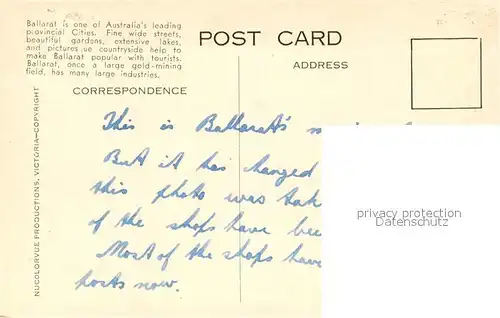 Ballarat is one of Australia's leading
provincial Cities. Fine wide streets,
beautiful gardens, extensive lakes,
and pictures,ue countryside help to
make Ballarat popular with tourists.
Ballarat, once a large gold-mining
field, has many large industries.
POST CARD
ADDRESS
CORRESPONDENCE
NUCOLORVUE PRODUCTIONS, VICTORIA—COPYRIGHT
This is Ballarat's
But it has changed
this photo was
of the shops have
Most of the shops have
posts now.
privacy protection
Datenschutz